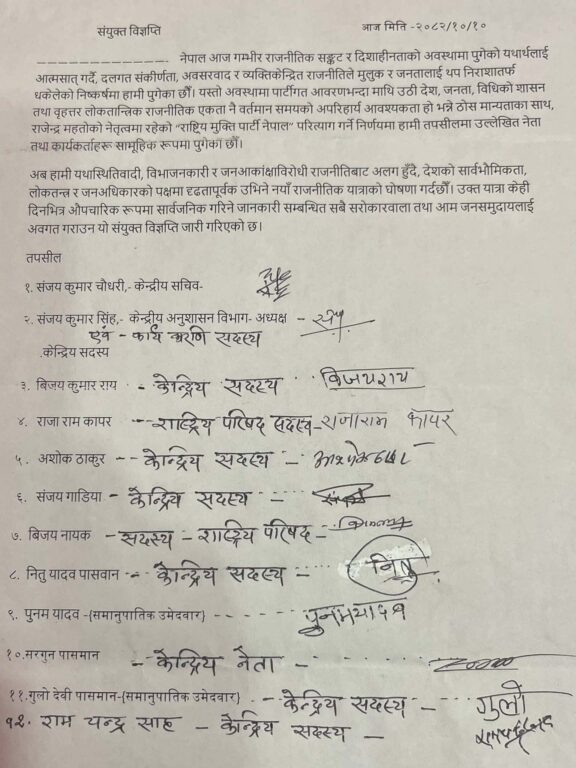 संयुक्त विज्ञप्ति
आज मिति -२०८२/१०/१०
_ _ _ _ _ _ _ _ _ _ _ _ _ _ नेपाल आज गम्भीर राजनीतिक सङ्कट र दिशाहीनताको अवस्थामा पुगेको यथार्थलाई
आत्मसात् गर्दै, दलगत संकीर्णता, अवसरवाद र व्यक्तिकेन्द्रित राजनीतिले मुलुक र जनतालाई थप निराशातर्फ
धकेलेको निष्कर्षमा हामी पुगेका छौँ। यस्तो अवस्थामा पार्टीगत आवरणभन्दा माथि उठी देश, जनता, विधिको शासन
तथा वृहत्तर लोकतान्त्रिक राजनीतिक एकता नै वर्तमान समयको अपरिहार्य आवश्यकता हो भन्ने ठोस मान्यताका साथ,
राजेन्द्र महतोको नेतृत्वमा रहेको "राष्ट्रिय मुक्ति पार्टी नेपाल" परित्याग गर्ने निर्णयमा हामी तपसीलमा उल्लेखित नेता
तथा कार्यकर्ताहरू सामूहिक रूपमा पुगेका छौँ।
अब हामी यथास्थितिवादी, विभाजनकारी र जनआकांक्षाविरोधी राजनीतिबाट अलग हुँदै, देशको सार्वभौमिकता,
लोकतन्त्र र जनअधिकारको पक्षमा दृढतापूर्वक उभिने नयाँ राजनीतिक यात्राको घोषणा गर्दछौँ। उक्त यात्रा केही
दिनभित्र औपचारिक रूपमा सार्वजनिक गरिने जानकारी सम्बन्धित सबै सरोकारवाला तथा आम जनसमुदायलाई
अवगत गराउन यो संयुक्त विज्ञप्ति जारी गरिएको छ।
तपसील
१. संजय कुमार चौधरी,- केन्द्रीय सचिव-
२. संजय कुमार सिंह,- केन्द्रीय अनुशासन विभाग- अध्यक्ष -
एवं - कार्य सदस्य
.केन्द्रिय सदस्य
३. बिजय कुमार राय - केन्द्रिय सदस्य विजयराय
४. राजा राम कापर -- राष्ट्रिय परिषद सदस्य- राजाराम कापर
५. अशोक ठाकुर -- केन्द्रिय सदस्य -
६. संजय गाडिया - केन्द्रिय सदस्य -
७. बिजय नायक - सदस्य - राष्ट्रिय परिषद -
८. नितु यादव पासवान - केन्द्रिय सदस्य - नितु
९. पुनम यादव -{समानुपातिक उमेदवार} - - - - पुनम यादव
१०.सरगुन पासमान - केन्द्रिय नेता -
११.गुलो देवी पासमान-{समानुपातिक उमेदवार} - केन्द्रिय सदस्य - गुलो
१२. राम चन्द्र साह - केन्द्रिय सदस्य -